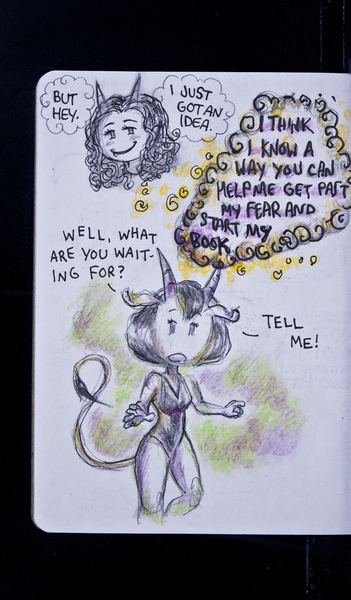 BUT
HEY.
I JUST
GOT AN
IDEA.
I THINK
I KNOW A
WAY YOU CAN
HELP ME GET PAST
MY FEAR AND
START MY
BOOK.
WELL, WHAT
ARE YOU WAIT-
ING FOR?
TELL
ME!